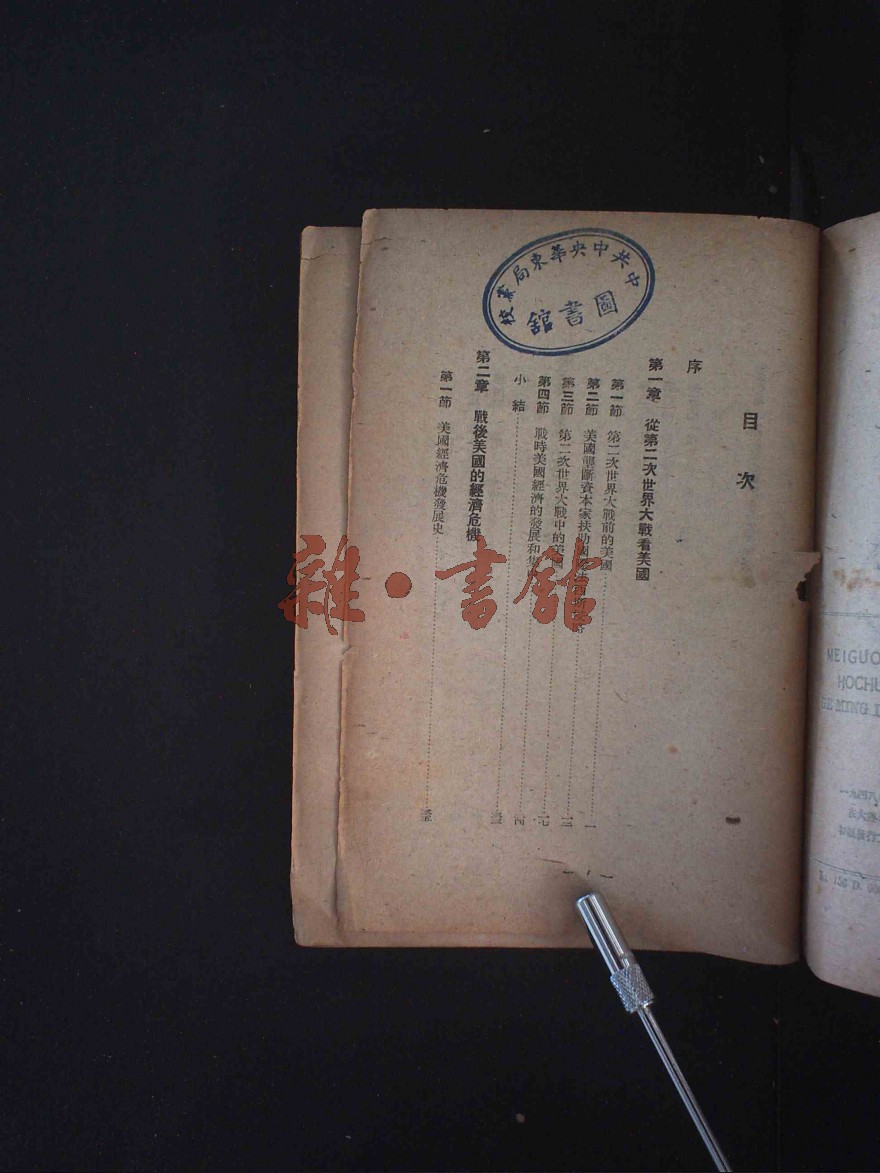 中共中央華東局黨校
圖書館
目次
序
第一章 從第二次世界大戰看美國
第一節 第二次世界大戰前的美國 一
第二節 美國壟斷資本家扶助
第三節 第二次世界大戰中的美
第四節 戰時美國經濟的發展和集
小結
第二章 戰後美國的經濟危機
第一節 美國經濟危機發展史
— 1 —
雜·書館
MEIGUO
HOCHU
GEMING
一九四八